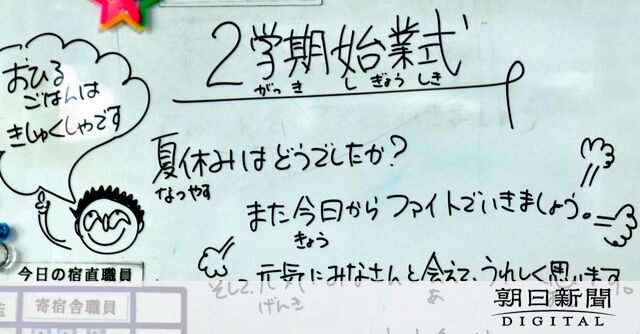 2学期始業式
がっき しぎょうしき
おひる
ごはんは
きしゅくしゃです
夏休みはどうでしたか?
なつやす
また今日からファイトでいきましょう。
きょう
そして、元気にみなさんと会えて、うれしく思います。
げんき あ
今日の宿直職員
寄宿舎職員
朝日新聞
DIGITAL